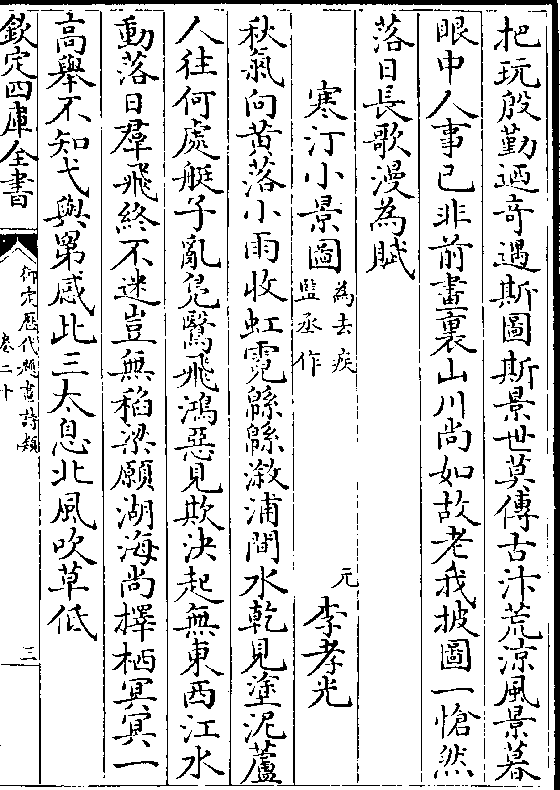 把玩殷勤迺奇遇斯圖斯景世莫傳古汴荒涼風景暮
眼中人事已非前畫裏山川尚如故老我披圖一愴然
落日長歌漫為賦
寒汀小景圖為去疾監丞作 元 李孝光
秋氣向黃落小雨收虹霓緜緜漵浦間水乾見塗泥蘆
人往何處艇子亂鳧鷖飛鴻惡見欺決起無東西江水
動落日羣飛終不迷豈無稻梁願湖海尚擇栖冥冥一
高舉不知弋與罤感此三太息北風吹草低
欽定四庫全書
御定歷代題畫詩類
卷二十
三